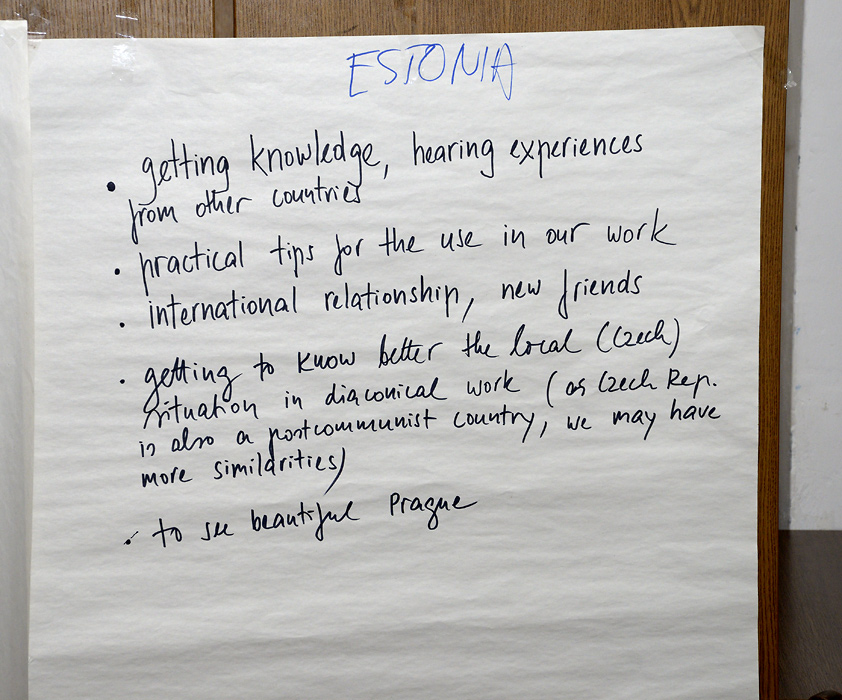 ESTONIA
• getting knowledge, hearing experiences
from other countries
• practical tips for the use in our work
• international relationship, new friends
• getting to know better the local (Czech)
situation in diaconical work (as Czech Rep.
is also a postcommunist country, we may have
more similarities)
• to see beautiful Prague